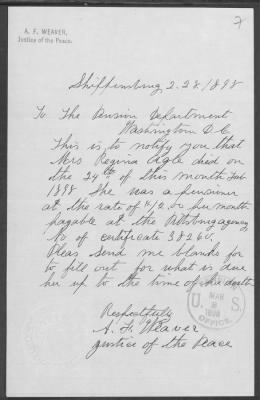 7
A. F. WEAVER,
Justice of the Peace.
Shippensburg 2.28/1898
To The Pension Department
Washington D.C
This is to notify you that
Mrs Regina Agle died on
the 24th of this month Feb
1898 She was a pensioner
at the rate of 12.00 per month
payable at the Pittsburg agency
No of certificate 38260.
Pleas send me blanks for
to fill out for what is due
her up to the time of her death
Respectfully
A. F. Weaver
Justice of the Peace
U. S.
MAR
1898
OFFICE.